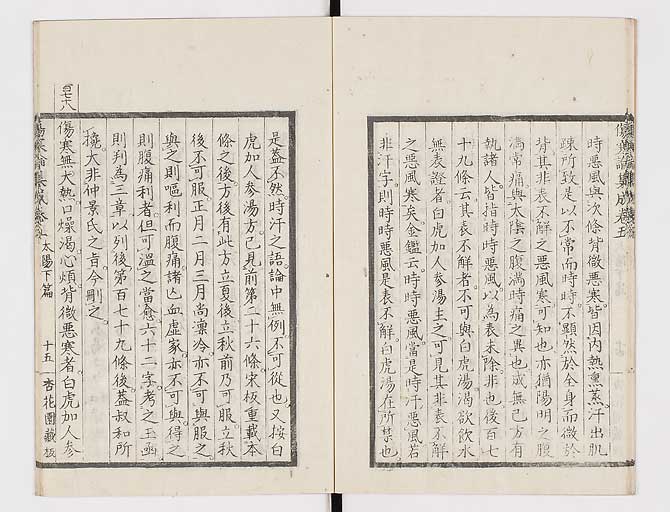 時悪風與次條背微悪寒皆因内熱熏蒸汗出肌
疎所致是以不常而時時不顕然於全身而微於
背其非表不解之悪風寒可知也亦猶陽明之腹
満常痛與太陰之腹満時痛之異也成無己方有
執諸人皆指時時悪風以為表未除非也後百七
十九條云其表不解者不可與白虎湯渇欲飲水
無表證者白虎加人参湯主之可見其非表不解
之悪風寒矣金鑑云時時悪風當是時汗悪風若
非汗字則時時悪風是表不解白虎湯在所禁也
傷寒論集成巻五
是蓋不然時汗之語論中無例不可從也又按白
虎加人参湯方已見前第二十六條宋板重載本
條之後方後有此方立夏後立秋前乃可服立秋
後不可服正月二月三月尚凛冷亦不可與服之
與之則嘔利而腹痛諸亡血虚家亦不可與得之
則腹痛利者但可温之當愈六十二字考之玉函
則判為三章以列後第百七十九條後蓋叔和所
攙大非仲景氏之旨今刪之
百七八
傷寒無大熱口燥渇心煩背微悪寒者白虎加人参
傷寒論集成巻五 太陽下篇 十五 杏花園蔵板